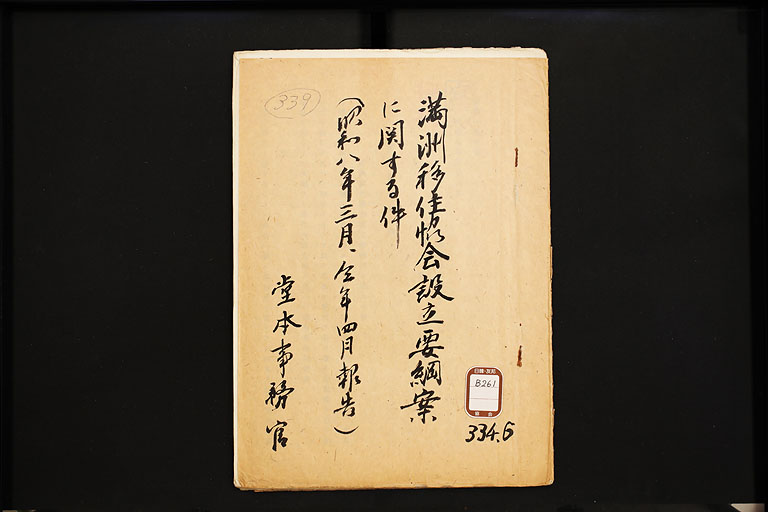 満洲移住協会設立要綱案
に関する件
(昭和八年三月、仝年四月報告)
堂本事務官
339
日韓・友邦
B261
協会
334.6